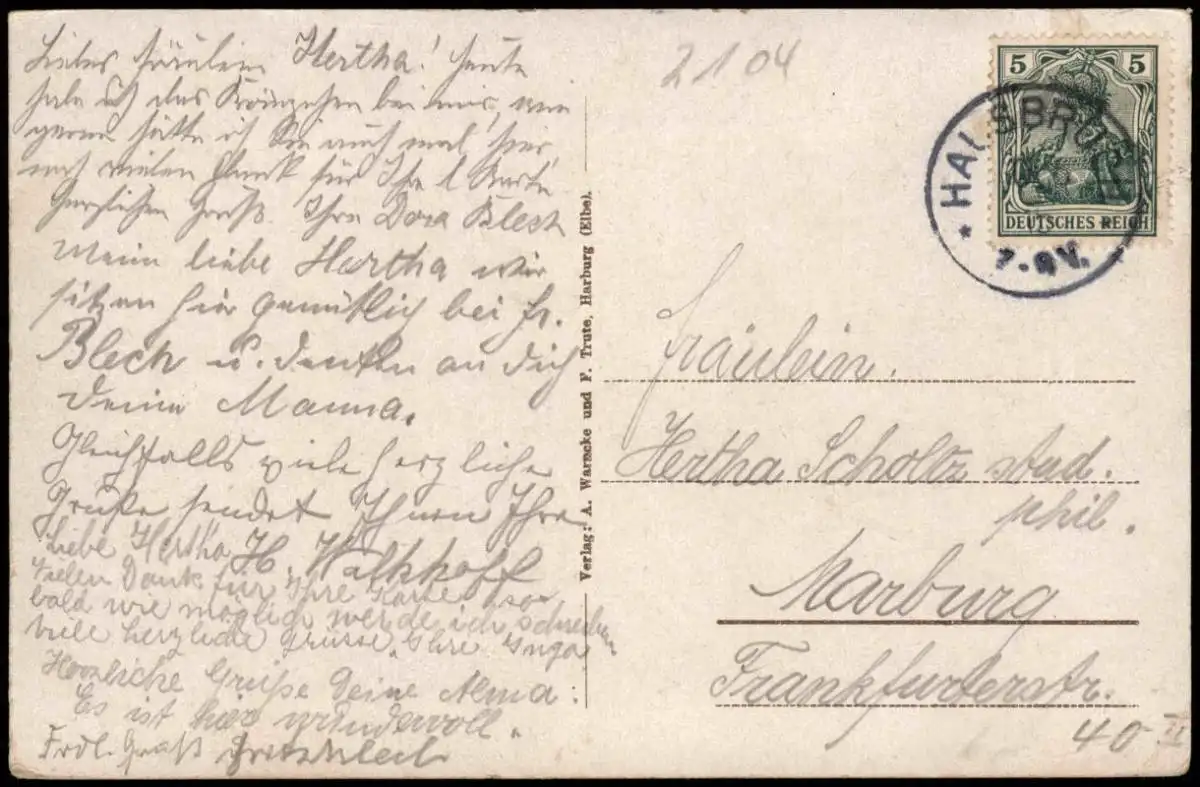 Liebes Fräulein Hertha! Heute
habe ich das Kränzchen bei mir, wie
gerne hätte ich Sie auch mal hier,
noch vielen Dank für Ihre l. Karte
herzlichen Gruß. Ihre Dora Blech
Meine liebe Hertha wir
sitzen hier gemütlich bei Fr.
Blech u. denken an dich
deine Mama.
Gleichfalls viele herzliche
Grüße sendet Ihnen Ihre
H. Walkhoff
Liebe Hertha
Vielen Dank für Ihre Karte so-
bald wie möglich werde ich schreiben
viele herzliche Grüsse. Ihre Inga
Herzliche Grüße Deine Alma:
Es ist hier wundervoll.
Frdl. Gruß
Verlag: A. Warnecke und F. Trute, Harburg (Elbe).
2104
5 5
DEUTSCHES REICH
* HALSBR
7-8V.
Fräulein.
Hertha Scholtz stud.
phil.
Marburg
Frankfurterstr.
40 II